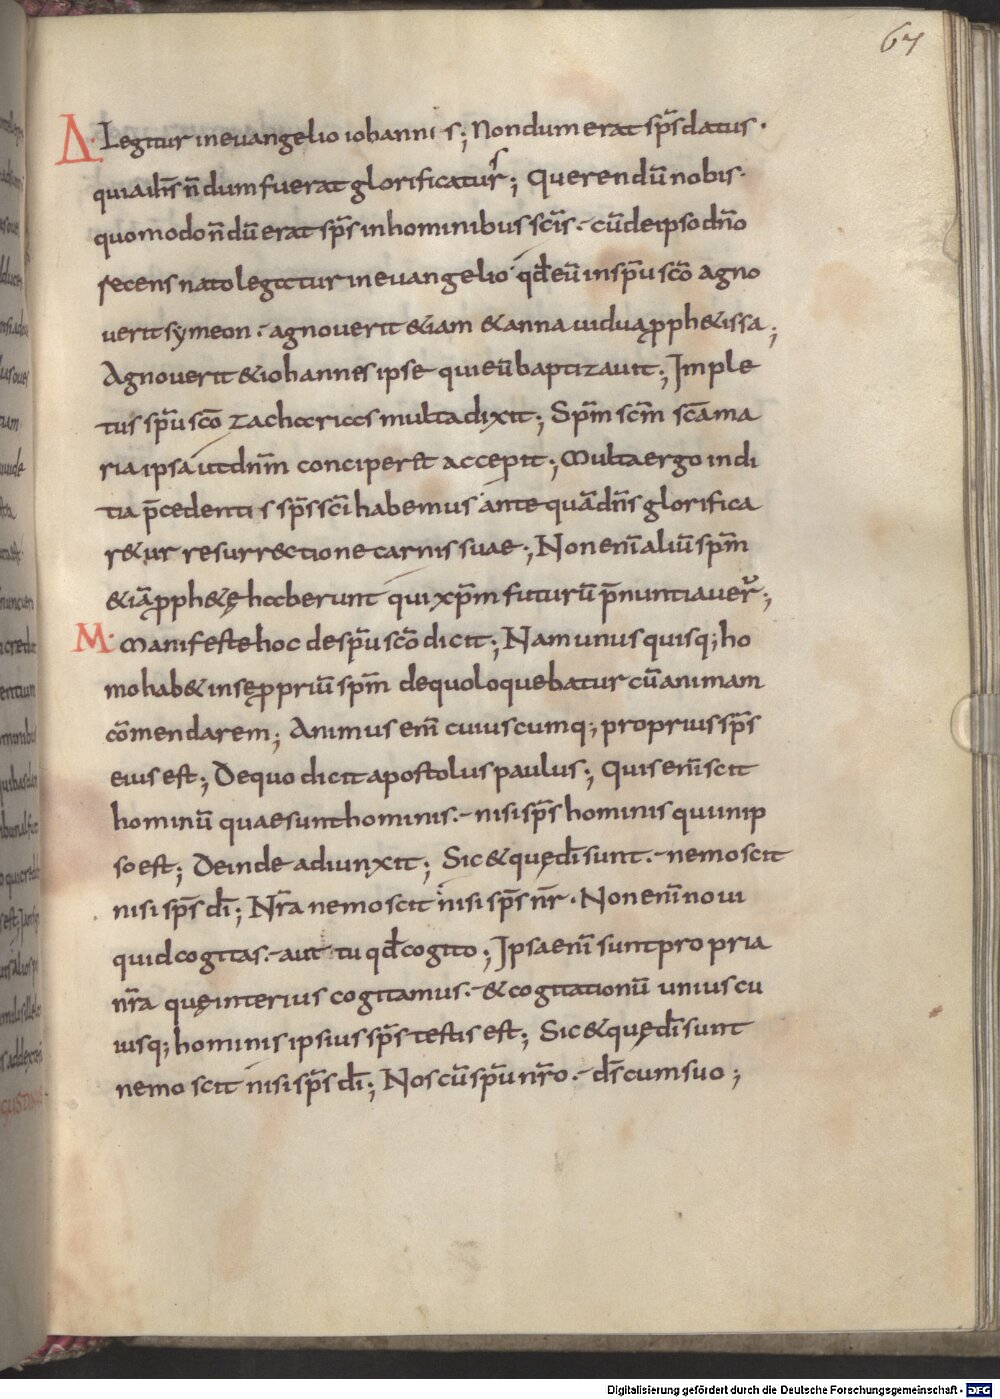 67
Δ· Legitur inevangelio iohannis; Nondum erat sp̄s datus·
quia ih̄s n̄dum fuerat glorificatur; Querendū nobis·
quomodo n̄dū erat sp̄s in hominibus sc̄is·- cū de ipso dn̄o
recens nato legitur in evangelio qđ eū in sp̄u sc̄o agno
verit symeon·- agnouerit &iam &anna uidua p̱ph&issa;
Agnouerit &iohannes ipse qui eū baptizauit; Imple
tus sp̄u sc̄o zacharias multa dixit; Sp̄m sc̄m sc̄a ma
ria ipsa ut dn̄m conciperet accepit; Multa ergo indi
tia p̄cedentis sp̄s sc̄i habemus ante quā dn̄s glorifica
r&ur resurrectione carnis suae; Non enī aliū sp̄m
&iā p̱ph&ę habuerunt qui xp̄m futurū p̄nuntiauer̄;
M· Manifeste hoc de sp̄u sc̄o dicit; Nam unus quisq; ho
mo hab& in se p̱priū sp̄m de quo loquebatur cū animam
cōmendarem; Animus enī cuiuscumq; proprius sp̄s
eius est; De quo dicit apostolus paulus; Quis enī scit
hominū quae sunt hominis·- nisi sp̄s hominis qui in ip
so est; Deinde adiunxit; Sic & quę dī sunt·- nemo scit
nisi sp̄s dī; Nr̄a nemo scit nisi sp̄s nr̄· Non enī noui
quid cogitas·- aut tu qđ cogito; Ipsa enī sunt propria
nr̄a quę interius cogitamus·- & cogitationū unius cu
iusq; hominis ipsius sp̄s testis est; Sic & quę dī sunt
nemo scit nisi sp̄s dī; Nos cū sp̄u nr̄o·- dś cum suo;
Digitalisierung gefördert durch die Deutsche Forschungsgemeinschaft - DFG